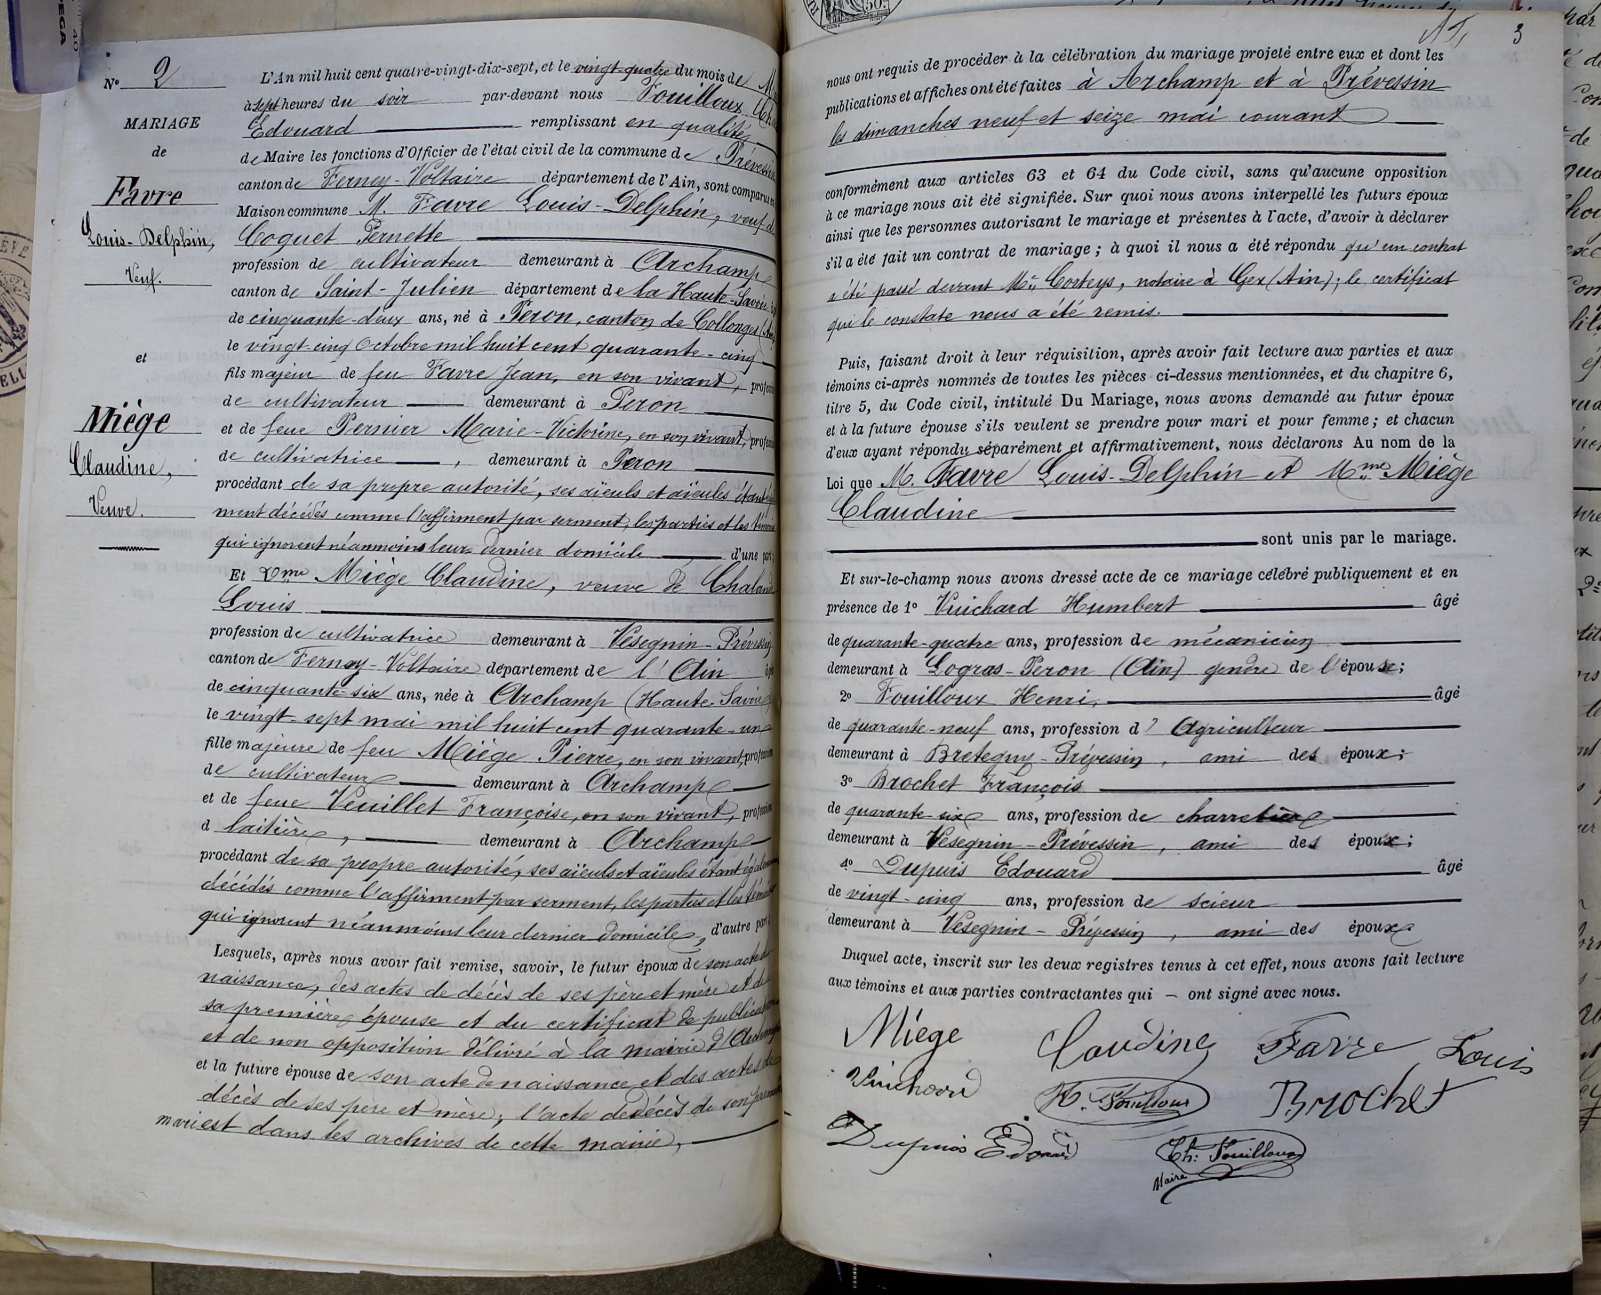 Nº 2
MARIAGE
de
Favre
Louis-Delphin,
Veuf.
et
Miège
Claudine,
Veuve.
L'An mil huit cent quatre-vingt-dix-sept, et le vingt-quatre du mois de M
à sept heures du soir par-devant nous Fouilloux
Edouard remplissant en qualité
de Maire les fonctions d'Officier de l'état civil de la commune de Prévessin
canton de Ferney-Voltaire département de l'Ain, sont comparus en
Maison commune M. Favre Louis-Delphin, veuf d
Coquet Pernette
profession de cultivateur demeurant à Archamp
canton de Saint-Julien département de la Haute-Savoie
de cinquante-deux ans, né à Péron, canton de Collonges
le vingt-cinq Octobre mil huit cent quarante-cinq
fils majeur de feu Favre Jean, en son vivant, profession
de cultivateur demeurant à Peron
et de feue Pernier Marie-Victorine, en son vivant, profession
de cultivatrice, demeurant à Peron
procédant de sa propre autorité, ses aïeuls et aïeules étant
ment décédés comme l'affirment par serment, les parties et les témoins
qui ignorent néanmoins leurs dernier domicile d'une part;
Et Dme Miège Claudine, veuve de Chaland
Louis
profession de cultivatrice demeurant à Vésegnin-Prévessin
canton de Ferney-Voltaire département de l'Ain
de cinquante-six ans, née à Archamp (Haute-Savoie
le vingt-sept mai mil huit cent quarante-un
fille majeure de feu Miège Pierre, en son vivant, profession
de cultivateur demeurant à Archamp
et de feue Vuillet Françoise, en son vivant, profession
d laitière, demeurant à Archamp
procédant de sa propre autorité, ses aïeuls et aïeules étant
décédés comme l'affirment par serment, les parties et les témoins
qui ignorent néanmoins leur dernier domicile, d'autre part
Lesquels, après nous avoir fait remise, savoir, le futur époux de son acte de
naissance, des actes de décès de ses père et mère et de
sa première épouse et du certificat de publication
et de non opposition délivré à la mairie d'Archamp
et la future épouse de son acte de naissance et des actes de
décès de ses père et mère; l'acte de décès de son premier
mari est dans les archives de cette mairie,
3
nous ont requis de procéder à la célébration du mariage projeté entre eux et dont les
publications et affiches ont été faites à Archamp et à Prévessin
les dimanches neuf et seize mai courant
conformément aux articles 63 et 64 du Code civil, sans qu'aucune opposition
à ce mariage nous ait été signifiée. Sur quoi nous avons interpellé les futurs époux
ainsi que les personnes autorisant le mariage et présentes à l'acte, d'avoir à déclarer
s'il a été fait un contrat de mariage; à quoi il nous a été répondu qu'un contrat
a été passé devant Me Corteys, notaire à Gex (Ain); le certificat
qui le constate nous a été remis.
Puis, faisant droit à leur réquisition, après avoir fait lecture aux parties et aux
témoins ci-après nommés de toutes les pièces ci-dessus mentionnées, et du chapitre 6,
titre 5, du Code civil, intitulé Du Mariage, nous avons demandé au futur époux
et à la future épouse s'ils veulent se prendre pour mari et pour femme; et chacun
d'eux ayant répondu séparément et affirmativement, nous déclarons Au nom de la
Loi que M. Favre Louis-Delphin et Mme Miège
Claudine
sont unis par le mariage.
Et sur-le-champ nous avons dressé acte de ce mariage célébré publiquement et en
présence de 1º Vuichard Humbert âgé
de quarante-quatre ans, profession de mécanicien
demeurant à Logras-Peron (Ain) gendre de l'épouse;
2º Fouilloux Henri, âgé
de quarante-neuf ans, profession d'Agriculteur
demeurant à Bretegny-Prévessin, ami des époux;
3º Brochet François
de quarante-six ans, profession de charretier
demeurant à Vésegnin-Prévessin, ami des époux;
4º Dupuis Edouard âgé
de vingt-cinq ans, profession de scieur
demeurant à Vesegnin-Prévessin, ami des époux
Duquel acte, inscrit sur les deux registres tenus à cet effet, nous avons fait lecture
aux témoins et aux parties contractantes qui - ont signé avec nous.
Miége Claudine Favre Louis
Vuichard H. Fouilloux Brochet
Dupuis Edouard Ch: Fouilloux
Maire